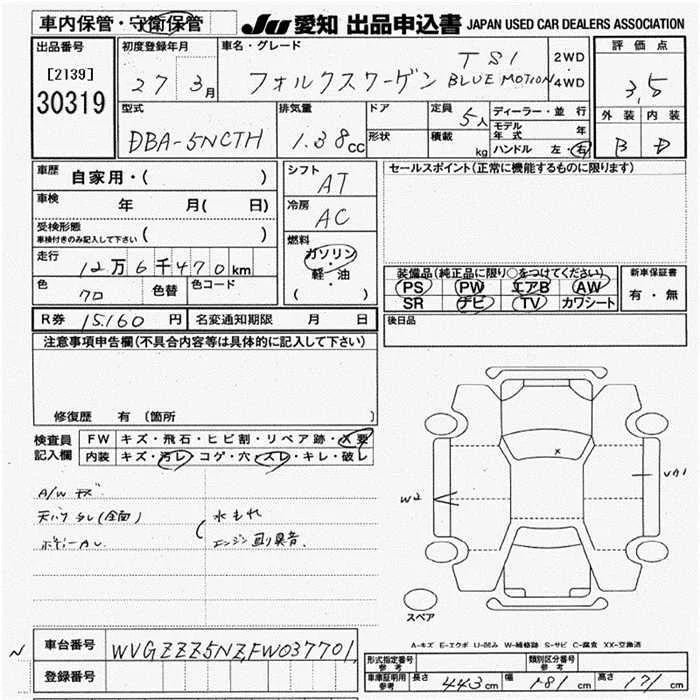 車内保管・守衛保管
JU 愛知 出品申込書 JAPAN USED CAR DEALERS ASSOCIATION
出品番号
[2139]
30319
初度登録年月
27 3月
車名・グレード
フォルクスワーゲン TSI BLUE MOTION
2WD
・
4WD
評価点
3,5
外装 内装
B D
型式
DBA-5NCTH
排気量
1.38cc
ドア
形状
定員
5人
積載
kg
ディーラー・並行
モデル年式 年
ハンドル 左・右
車歴
自家用・( )
車検
年 月( 日)
受検形態
車検付きのみ記入して下さい
( )
走行
12万6千470km
色
クロ
色替
色コード
シフト
AT
冷房
AC
燃料
ガソリン
・
軽・油
( )
セールスポイント(正常に機能するものに限ります)
装備品(純正品に限り○をつけてください)
PS PW エアB AW
SR ナビ TV カワシート
新車保証書
有・無
R券 15,160 円
名変通知期限 月 日
後日品
注意事項申告欄(不具合内容等は具体的に記入して下さい)
修復歴 有 〔箇所 〕
検査員記入欄
FW キズ・飛石・ヒビ割・リペア跡・X要
内装 キズ・汚レ・コゲ・穴・スレ・キレ・破レ
A/W キズ
水もれ
W2
x
スペア
A-キズ E-エクボ U-凹み W-補修跡 S-サビ C-腐食 XX-交換済
N
車台番号
WVGZZZ5NZFW037701
登録番号
形式指定番号
参考
類別区分番号
参考
車庫証明用
参考
長さ 443cm
幅 181cm
高さ 171cm